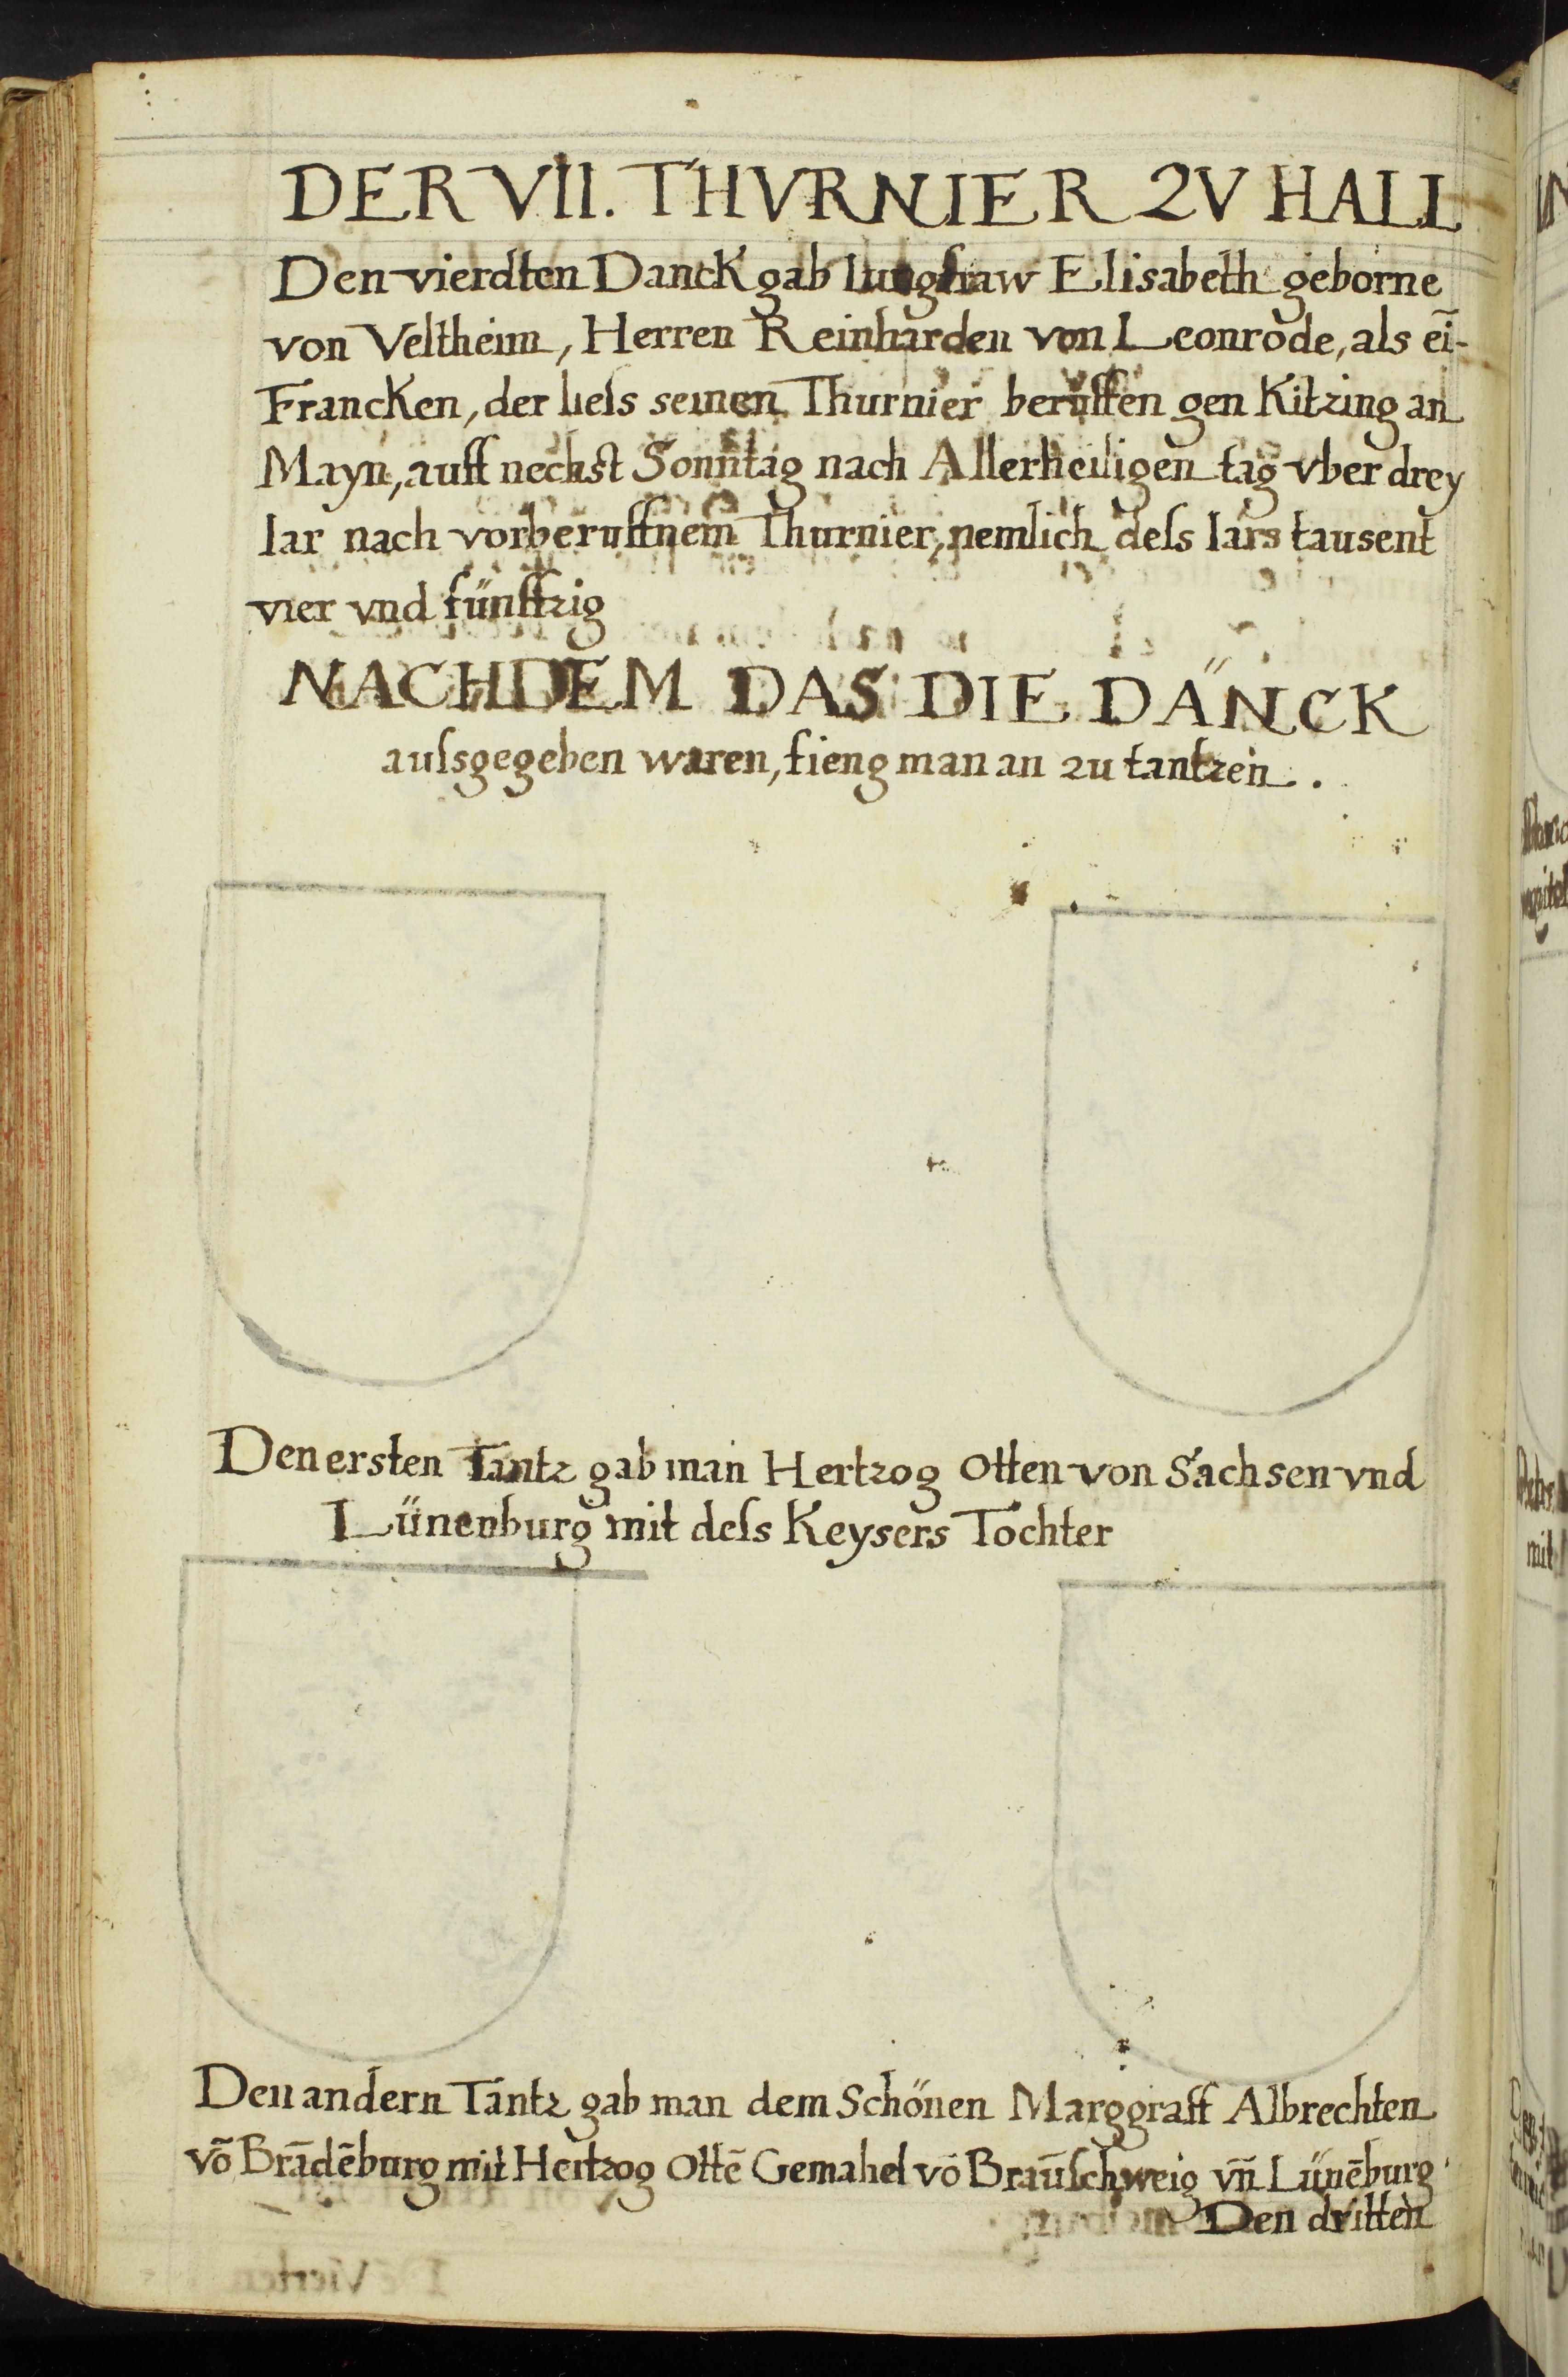 DER VII. THVRNIER ZV HALL
Den vierdten Danck gab Iungfraw Elisabeth geborne
von Veltheim, Herren Reinharden von Leonrode, als eī-
Francken, der liefs seinen Thurnier beruffen gen Kitzing an
Mayn, auff nechst Sonntag nach Allerheiligen tag vber drey
Iar nach vorberuffnem Thurnier, nemlich defs Iars tausent
vier vnd fünfftzig
NACHDEM DAS DIE DÄNCK
aufsgegeben waren, fieng man an zu tantzen.
Den ersten Tantz gab man Hertzog Otten von Sachsen vnd
Lünenburg mit defs Keysers Tochter
Den andern Tantz gab man dem Schönen Marggraff Albrechten
vō Brādēburg mit Hertzog Ottē Gemahel vō Braūschweig vn̄ Lünēburg
Den dritten